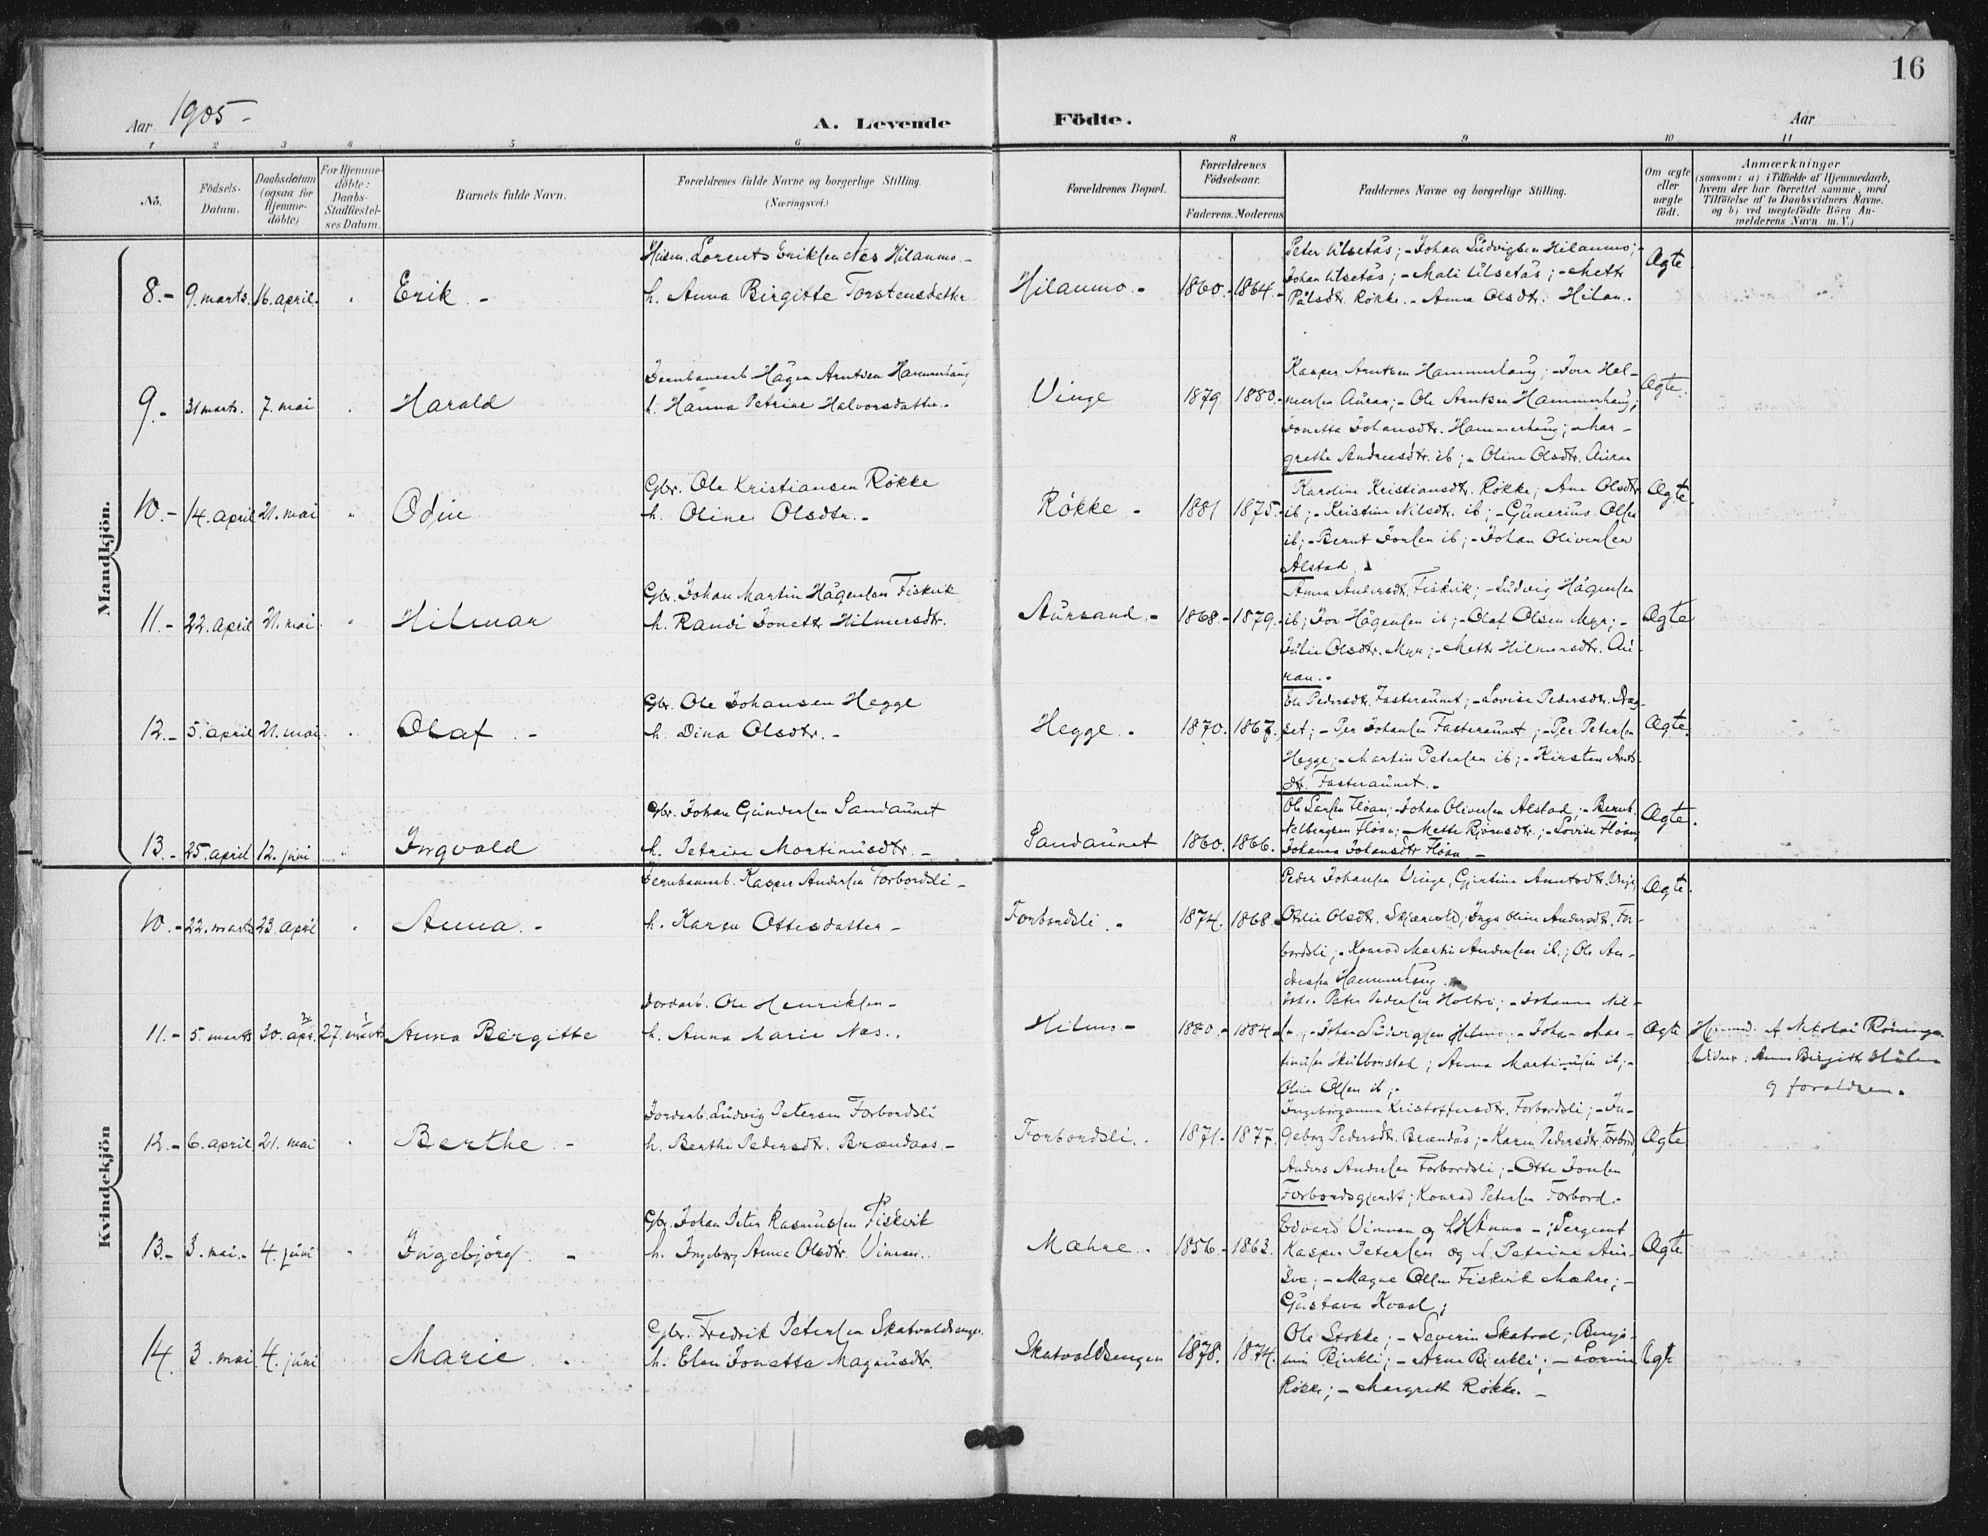 16
Aar 1905 -
A. Levende Födte.
Aar
1 2 3 4 5 6 8 9 10 11
No.
Födsels-Datum.
Daabsdatum (ogsaa for Hjemme-döbte)
For Hjemme-döbte: Daabs-Stadfæstel-ses Datum.
Barnets fulde Navn.
Forældrenes fulde Navne og borgerlige Stilling.
(Næringsvei.)
Forældrenes Bopæl.
Forældrenes Födselsaar.
Faderens. Moderens
Faddernes Navne og borgerlige Stilling.
Om ægte eller uægte födt.
Anmærkninger
(saasom: a) i Tilfælde af Hjemmedaab, hvem der har forrettet samme, med Tilföielse af to Daabsvidners Navne. og b) ved uægtefödte Börn An-melderens Navn m. V.)
Mandkjön.
8.- 9. marts. 16. april. " Erik. -
Husm. Lorents Eriksen Næs Hilanmo. -
h. Anna Birgitte Torstensdatter
Hilanmo. - 1860. - 1864. -
Peter Ulsetås; - Johan Ludvigsen Hilanmo; -
Johan Ulsetås; - Mali Ulsetås; - Mett
Pålsdtr. Røkke. - Anna Olsdtr. Hilan. -
Ægte
9. - 31 marts. 7. mai " Harald
Jernbanearb Hågen Arntsen Hammerhaug
h. Hanna Petrine Halvorsdatter. -
Vinge 1879 1880. -
Kasper Arntsen Hammerhaug; - Ivar Hal-
mersen Auran; - Ole Arntsen Hammerhaug;
Jonetta Johansdtr. Hammerhaug; - Mar-
grethe Andreasdtr. ib; - Oline Olsdtr. Auran
Ægte.
10. - 14. april 21. mai " Odin
Gbr. Ole Kristiansen Røkke
h. Oline Olsdtr. -
Røkke - 1881 1875. -
Karoline Kristiansdtr. Røkke; Ane Olsdtr
ib; - Kristine Nilsdtr. ib; - Gunerius Olsen
ib; - Bernt Jonsen ib; - Johan Oliversen
Alstad.
Ægte.
11. - 22. april 21. mai " Hilmar
Gbr. Johan Martin Hågensen Fiskvik
h. Randi Jonett Hilmersdtr.
Aursand. - 1868. - 1879. -
Anna Andersdtr. Fiskvik; - Ludvig Hågensen
ib; Jon Hågensen ib; - Olaf Olsen Myr; -
Julie Olsdtr. Myr; - Mette Hilmersdtr. Au-
ran. -
Ægte
12. - 5. april 21. mai. " Olaf. -
Gbr. Ole Johansen Hegge
h. Dina Olsdtr. -
Hegge. - 1870. 1867.
Eli Pedersdtr. Fasteraunet; - Lovise Pedersdtr. Dræg-
set; - Per Johansen Fasteraunet; - Per Petersen
Hegge; - Martin Petersen ib; - Kirsten Arnts-
dtr. Fasteraunet. -
Ægte.
13. - 25. april 12. juni " Ingvald
Gbr. Johan Gundersen Sandaunet
h. Petrine Martinusdtr. -
Sandaunet 1860. 1866.
Ole Larsen Floan; - Johan Oliversen Alstad; - Bernt
Floan; - Mette Bjørnsdtr.; - Lovise Floan,
Johanna Johansdtr Floan. -
Ægte.
Kvindekjön
10. - 22. marts 23. april " Anna. -
Jernbanearb. Kasper Andersen Forbordsli -
h. Karen Ottesdatter -
Forbordsli. - 1874. 1868 -
Peder Johansen Vinge, Gjertine Arntsdtr. Vinge,
Otilie Olsdtr. Skjærvold; Inga Oline Andersdtr. For-
bordsli; - Konrad Martin Andersen ib.; Ole An-
dersen Hammerhaug.
Ægte.
11. - 5. marts 30. apr. 27. marts Anna Birgitte
Jordarb. Ole Henriksen -
h. Anna Marie Næs. .
Hilmo - 1880. - 1884 -
Peter Pedersen Holtre; - Johanna Nil-
; - Johan Ludvigsen Hilmo; - Johan Mar-
tinusen Skulbørstad; Anna Martinusen ib; -
Oline Olsen ib; -
Ægte
Hjemmed. af Nikolai Rønninge.
Vidner: Anna Birgitte Hilmo
og forældren. -
12. - 6. april 21. mai " Berthe. -
Jordarb. Ludvig Petersen Forbordsli
h. Berthe Pedersdtr. Brændaas. -
Forbordsli. . 1871. - 1877.
Ingeborganna Kristoffersdtr. Forbordsli; - In-
geborg Pedersdtr. Brændås; - Karen Pedersdtr. Forbord,
Anders Andersen Forbordsli; - Otte Jonsen
Forbordsgjerdt; Konrad Petersen Forbord. -
Ægte
13. - 3. mai. - 4. juni " Ingebjørg. -
Gbr. Johan Peter Rasmussen Fiskvik
h. Ingeborg Anna Olsdtr. Vinnan. .
Mæhre. . 1856. - 1863.
Edvard Vinnan og h. Anna -; Sergent
Kasper Petersen og h. Petrine Aun-
; - Magne Olsen Fiskvik Mæhre; -
Gustava Kvaal;
Ægte
14. 3. mai 4. juni Marie. .
Gbr. Fredrik Petersen Skatvaldsengen.
h. Elen Jonetta Magnusdtr.
Skatvaldsengen 1878. 1874.
Ole Stokke; - Severin Skatval; Benja-
min Bjerkli; - Arne Bjerkli; - Lovise
Røkke; - Margreth Røkke. -
Ægte